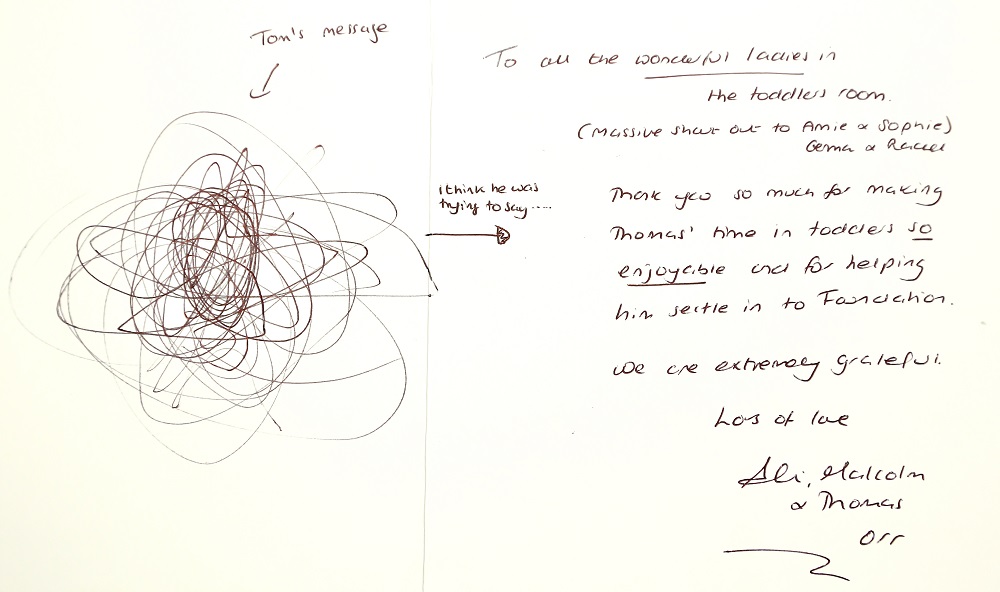 Tom's message
I think he was
trying to say.....
To all the wonderful ladies in
the toddlers room.
(Massive shout out to Amie & Sophie)
Gema & Rachel
Thank you so much for making
Thomas' time in toddlers so
enjoyable and for helping
him settle in to Foundation.
We are extremely grateful.
Lots of love
Ali, Malcolm
& Thomas
Orr